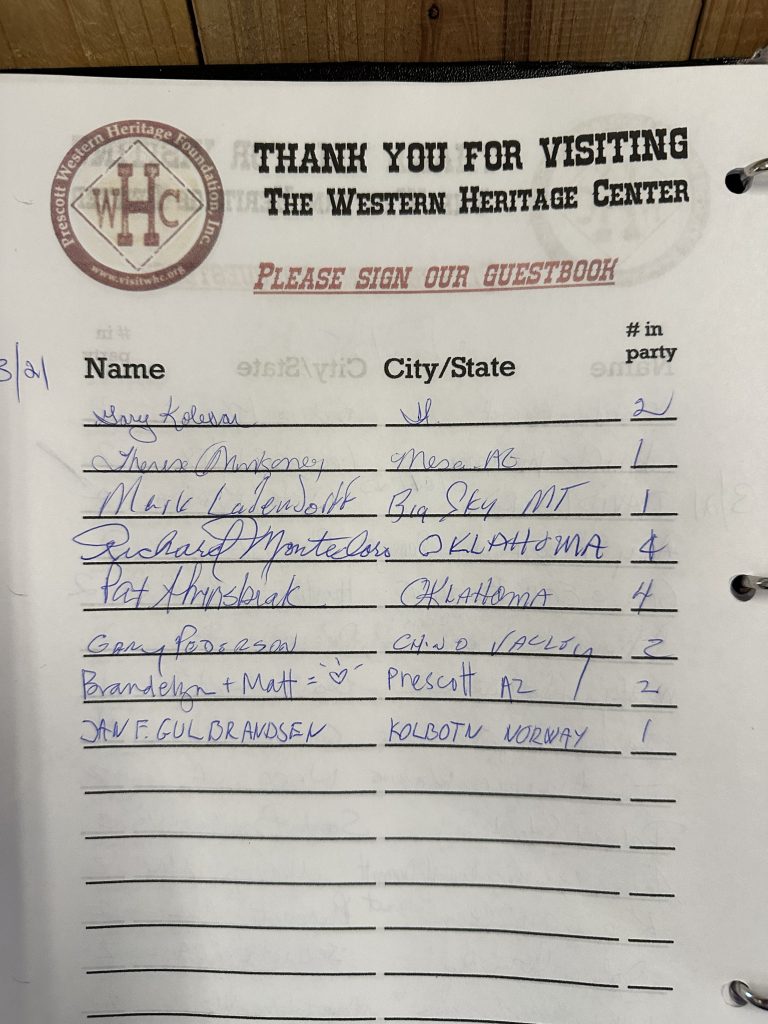 Prescott Western Heritage Foundation, Inc.
WHC
www.visitwhc.org
THANK YOU FOR VISITING
THE WESTERN HERITAGE CENTER
PLEASE SIGN OUR GUESTBOOK
3/21
Name City/State # in party
Gary 2
Therese Mesa AZ 1
Mark Ladendorff Big Sky MT 1
Richard OKLAHOMA 4
Pat OKLAHOMA 4
GARY PEDERSON CHINO VALLEY 2
Brandelyn + Matt = Prescott AZ 2
JAN F. GULBRANDSEN KOLBOTN NORWAY 1